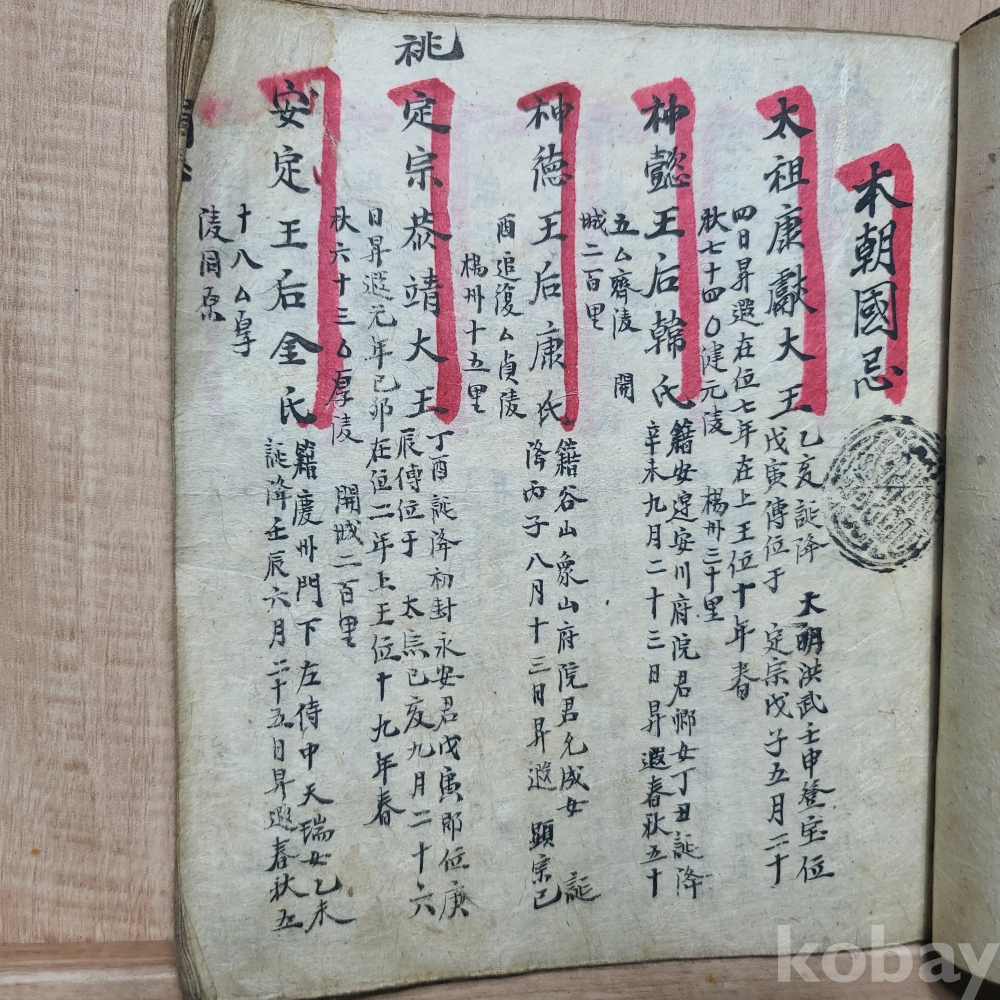 本朝國忌
太祖康獻大王
乙亥誕降 大明洪武壬申登宝位
戊寅傳位于 定宗戊子五月二十
四日昇遐在位七年在上王位十年春
秋七十四○健元陵 楊州三十里
神懿王后韓氏
籍安邊安川府院君卿女丁丑誕降
辛未九月二十三日昇遐春秋五十
五厶齊陵 開
城二百里
神德王后康氏
籍谷山象山府院君允成女 誕
降丙子八月十三日昇遐 顯宗己
酉追復厶貞陵
楊州十五里
祧
定宗恭靖大王
丁酉誕降初封永安君戊寅即位庚
辰傳位于 太宗己亥九月二十六
日昇遐元年己卯在位二年上王位十九年春
秋六十三○厚陵 開城二百里
安定王后金氏
籍慶州門下左侍中天瑞女乙未
誕降壬辰六月二十五日昇遐春秋五
十八厶厚
陵同原
kobay